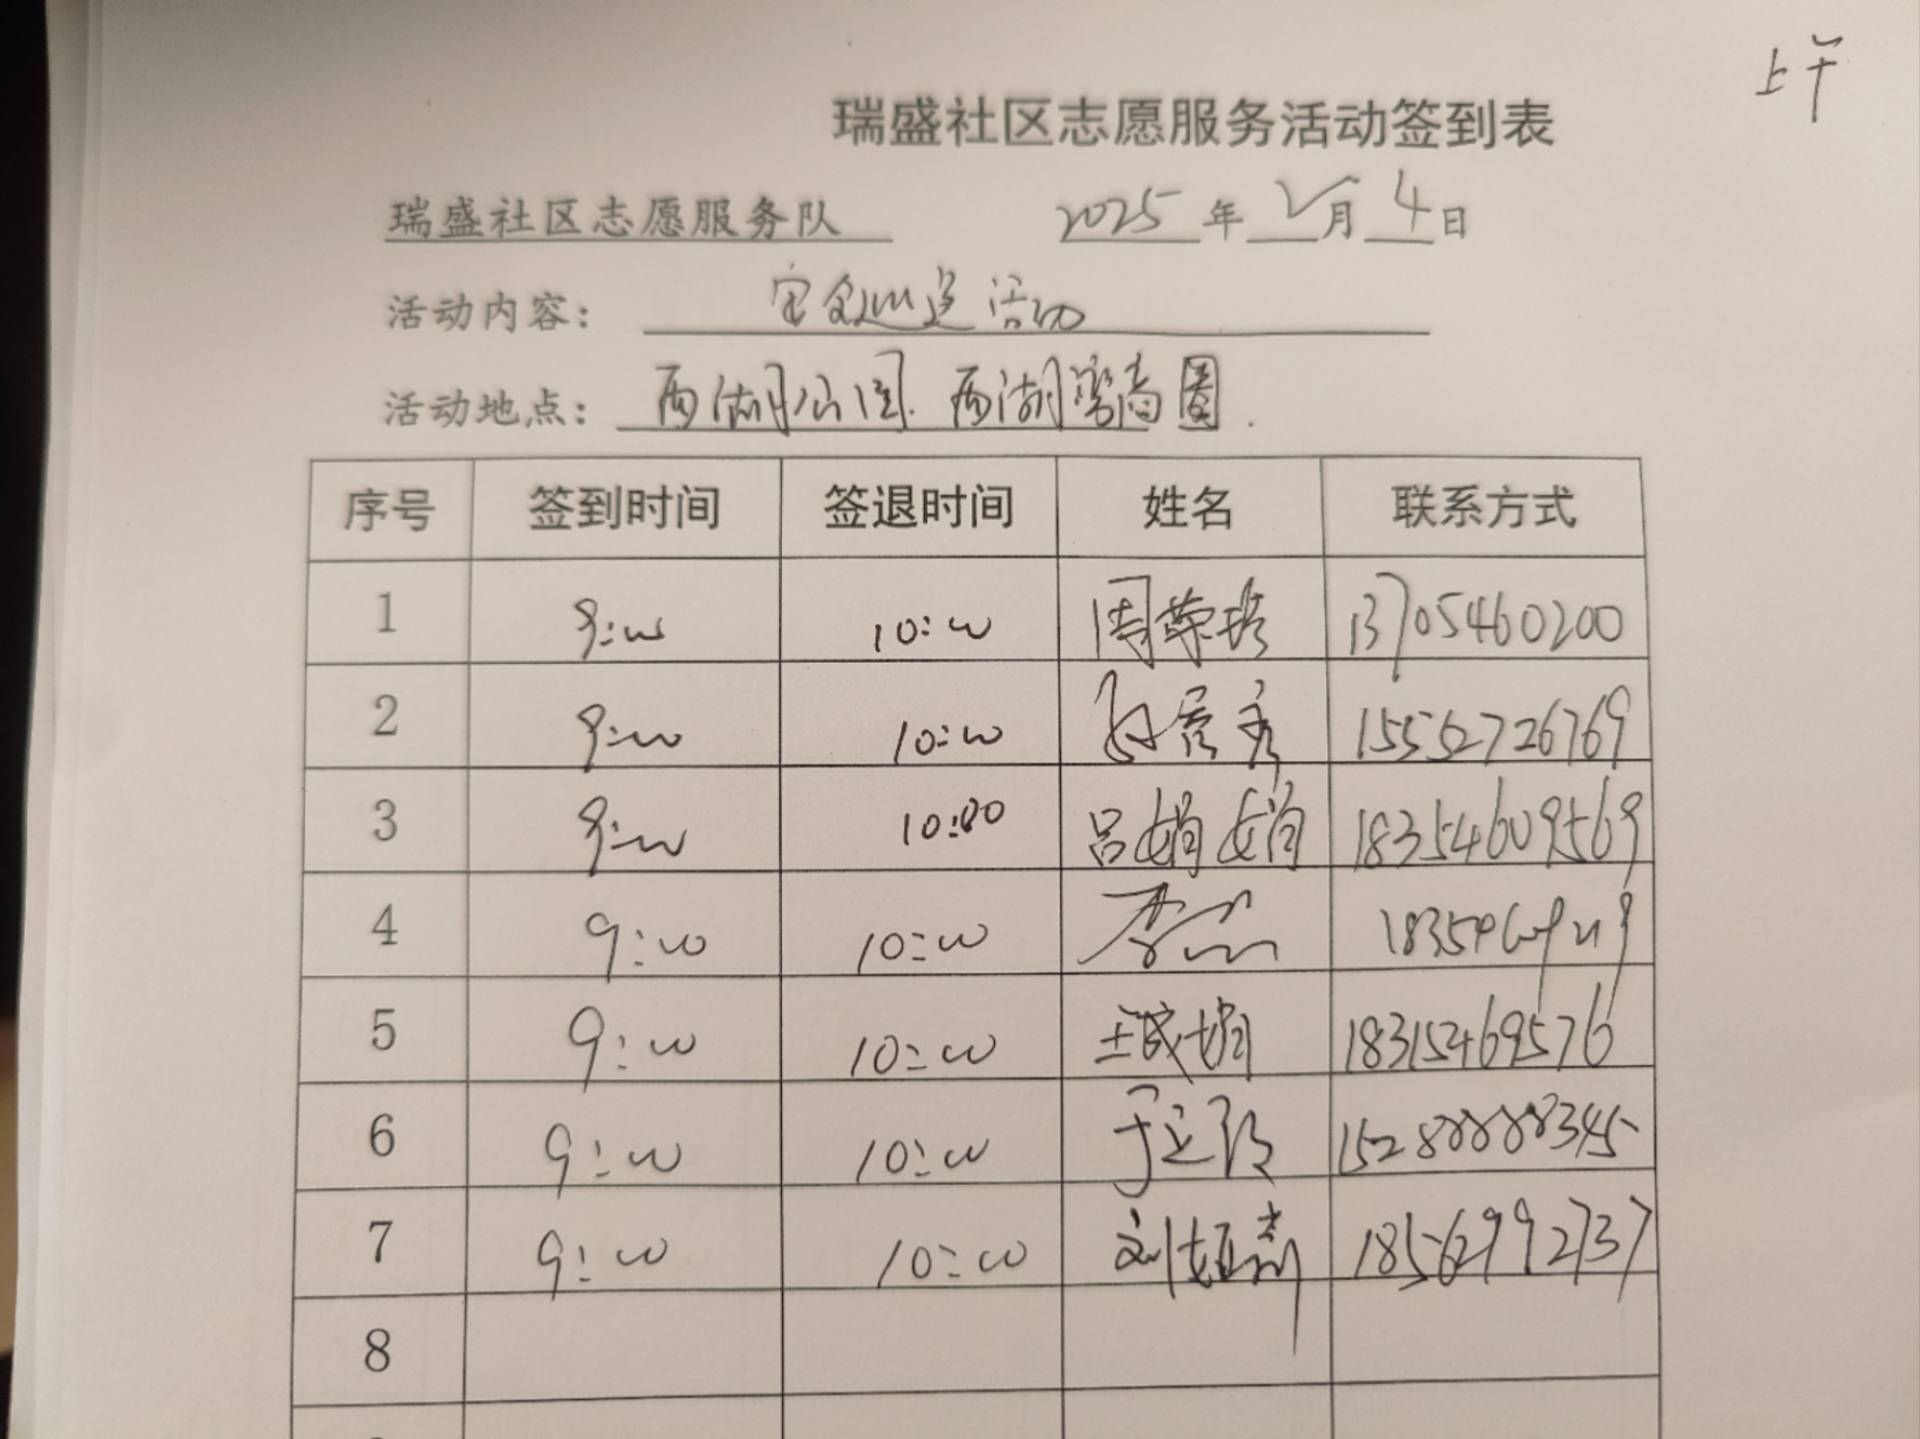 上午
瑞盛社区志愿服务活动签到表
瑞盛社区志愿服务队 2025年2月4日
活动内容: 安全巡逻活动
活动地点: 西湖公园.西湖湾商圈.
序号 签到时间 签退时间 姓名 联系方式
1 9:00 10:00 周荣 13705460200
2 9:00 10:00 15552726769
3 9:00 10:00 吕娟娟 18354609569
4 9:00 10:00 李
5 9:00 10:00 王 娟 18315469576
6 9:00 10:00 于 15288888345
7 9:00 10:00 刘娅 18562992737
8